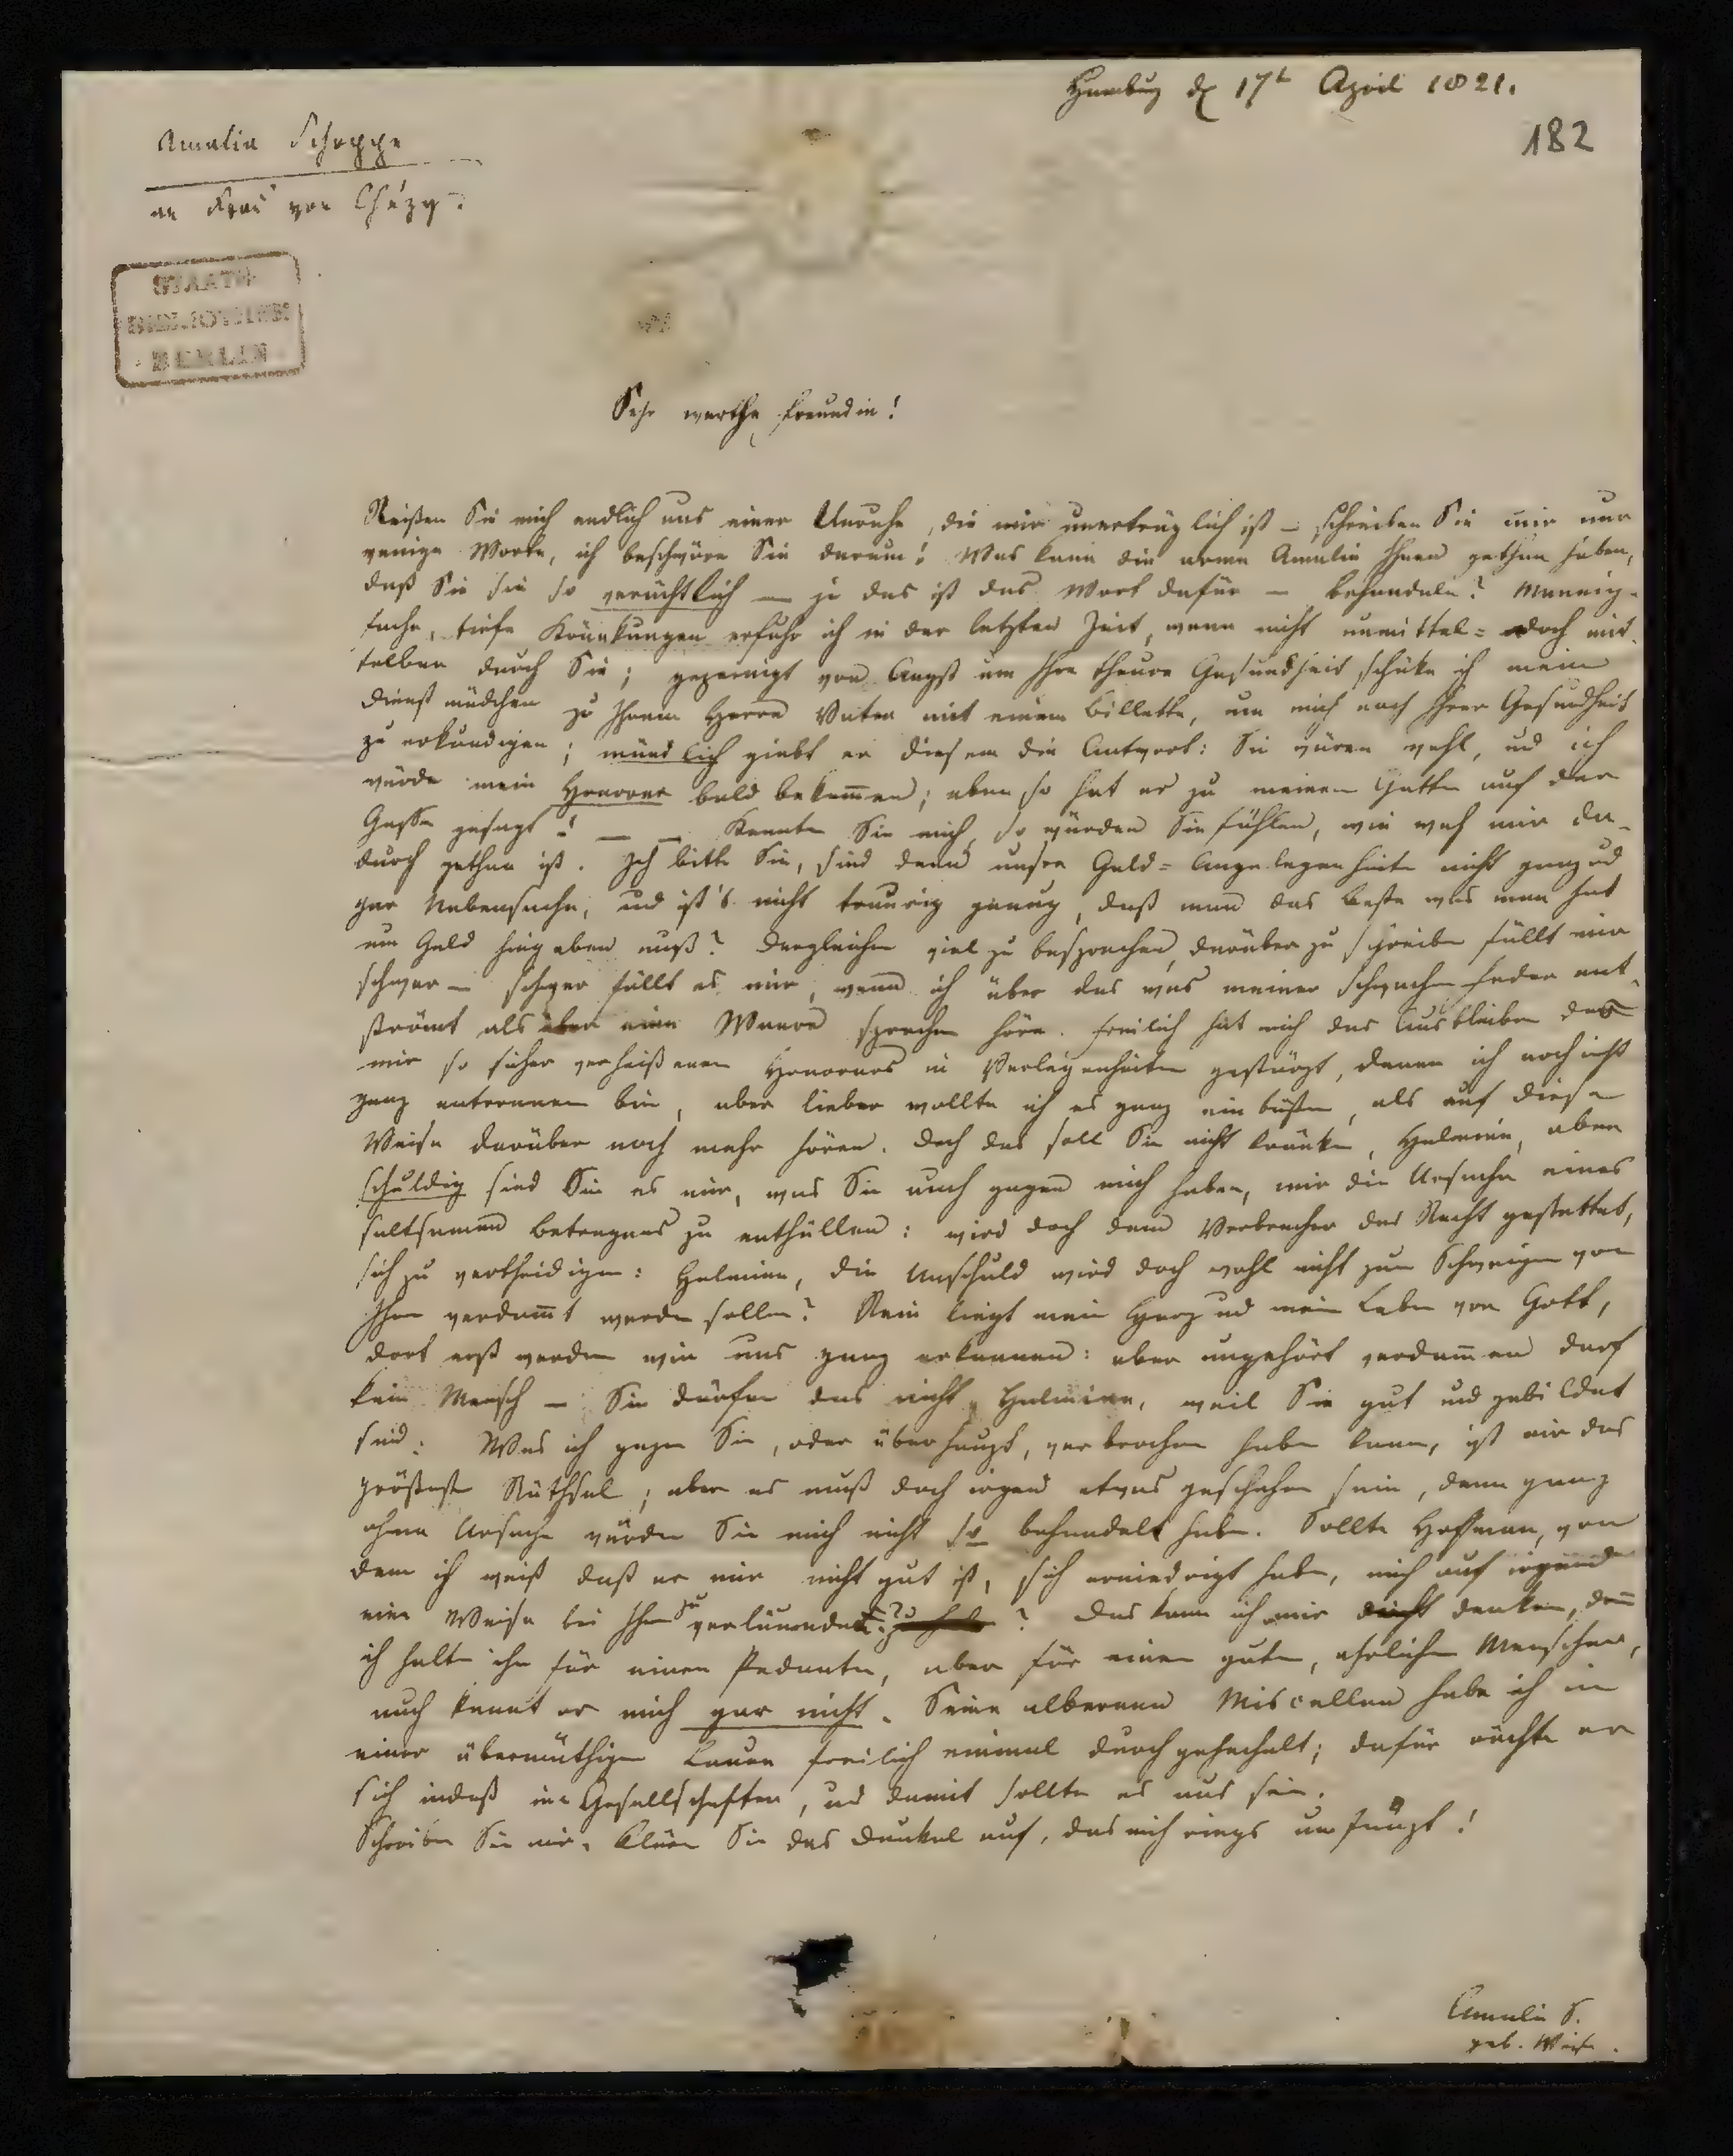 Hamburg d. 17t April 1821.
182
Amalia Schoppe
an Frau von Chézy.
STAATS
BIBLIOTHEK
BERLIN
Sehr werthe Freundin!
Reißen Sie mich endlich aus einer Unruhe, die mir unerträglich ist – schreiben Sie mir nur
wenige Worte, ich beschwöre Sie darum! Was kann die arme Amalie Ihnen gethan haben,
daß Sie sie so verächtlich – ja das ist das Wort dafür – behandeln? Mannig-
fache, tiefe Kränkungen erfuhr ich in der letzten Zeit, wenn nicht unmittel= doch mit-
telbar durch Sie; gepeinigt von Angst um Ihre theure Gesundheit, schicke ich mein
Dienstmädchen zu Ihrem Herrn Vater mit einem Billette, um mich nach Ihrer Gesundheit
zu erkundigen; mündlich giebt er diesem die Antwort: Sie wären wohl, und ich
würde mein Honorar bald bekommen; eben so hat er zu meinem Gatten auf der
Gasse gesagt! – – Kennten Sie mich, so würden Sie fühlen, wie weh mir da-
durch gethan ist. Ich bitte Sie, sind denn unsre Geld=Angelegenheiten nicht ganz und
gar Nebensache, und ist's nicht traurig genug, daß man das Beste was man hat
um Geld hingeben muß? Dergleichen viel zu besprechen, darüber zu schreiben fällt mir
schwer – schwer fällt es mir, wenn ich über das was meiner schwachen Feder ent-
strömt als über eine Waare sprechen höre. Freilich hat mich das Ausbleiben des
mir so sicher verheißenen Honorars in Verlegenheiten gestürzt, denen ich noch nicht
ganz entronnen bin, aber lieber wollte ich es ganz einbüßen, als auf diese
Weise darüber noch mehr hören. Doch das soll Sie nicht kränken, Helmina, aber
schuldig sind Sie es mir, was Sie auch gegen mich haben, mir die Ursache eines
seltsamen Betragens zu enthüllen: wird doch dem Verbrecher das Recht gestattet,
sich zu vertheidigen: Helmina, die Unschuld wird doch wohl nicht zum Schweigen von
Ihnen verdammt werden sollen? Rein liegt mein Herz und mein Leben vor Gott,
dort erst werden wir uns ganz erkennen: aber ungehört verdammen darf
kein Mensch – Sie dürfen das nicht, Helmina, weil Sie gut und gebildet
sind: Was ich gegen Sie, oder überhaupt, verbrochen haben kann, ist mir das
größeste Räthsel; aber es muß doch irgend etwas geschehen sein, denn ganz
ohne Ursache würden Sie mich nicht so behandelt haben. Sollte Hoffmann, von
dem ich weiß daß er mir nicht gut ist, sich erniedrigt haben, mich auf irgend
eine Weise bei Ihnen zu verläumden? Das kann ich mir nicht denken, denn
ich halte ihn für einen Pedanten, aber für einen guten, ehrlichen Menschen,
auch kennt er mich gar nicht. Seine albernen Miscellen habe ich in
einer übermüthigen Laune freilich einmal durchgehechelt; dafür rächte er
sich indeß in Gesellschaften, und damit sollte es aus sein.
Schreiben Sie mir, klären Sie das Dunkel auf, das mich rings umfängt!
Amalia S.
geb. Weise.